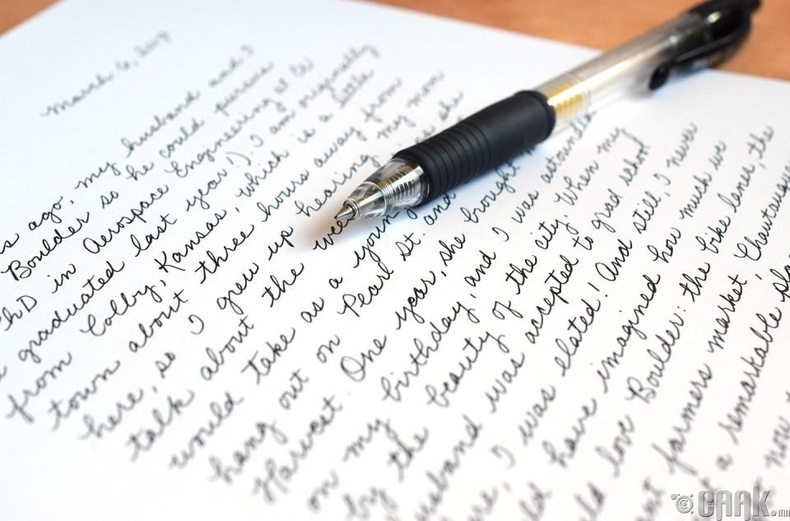 March 6, 2017
s ago, my husband and I
Boulder so he could pursue
PhD in Aerospace Engineering at
graduated last year!) I am originally
from Colby, Kansas, which is a little
town about three hours away from
here, so I grew up hearing my mom
talk about the she
would take as a young
hang out on Pearl St. and
Harvest. One year, she brought
on my birthday, and I was astounded
by the beauty of the city. When my
husband was accepted to grad school
here, I was elated! And still, I never
have imagined how much we
love Boulder: the bike lanes, the
farmers market, Chautauqua
a remarkable
now
CAAK.mn